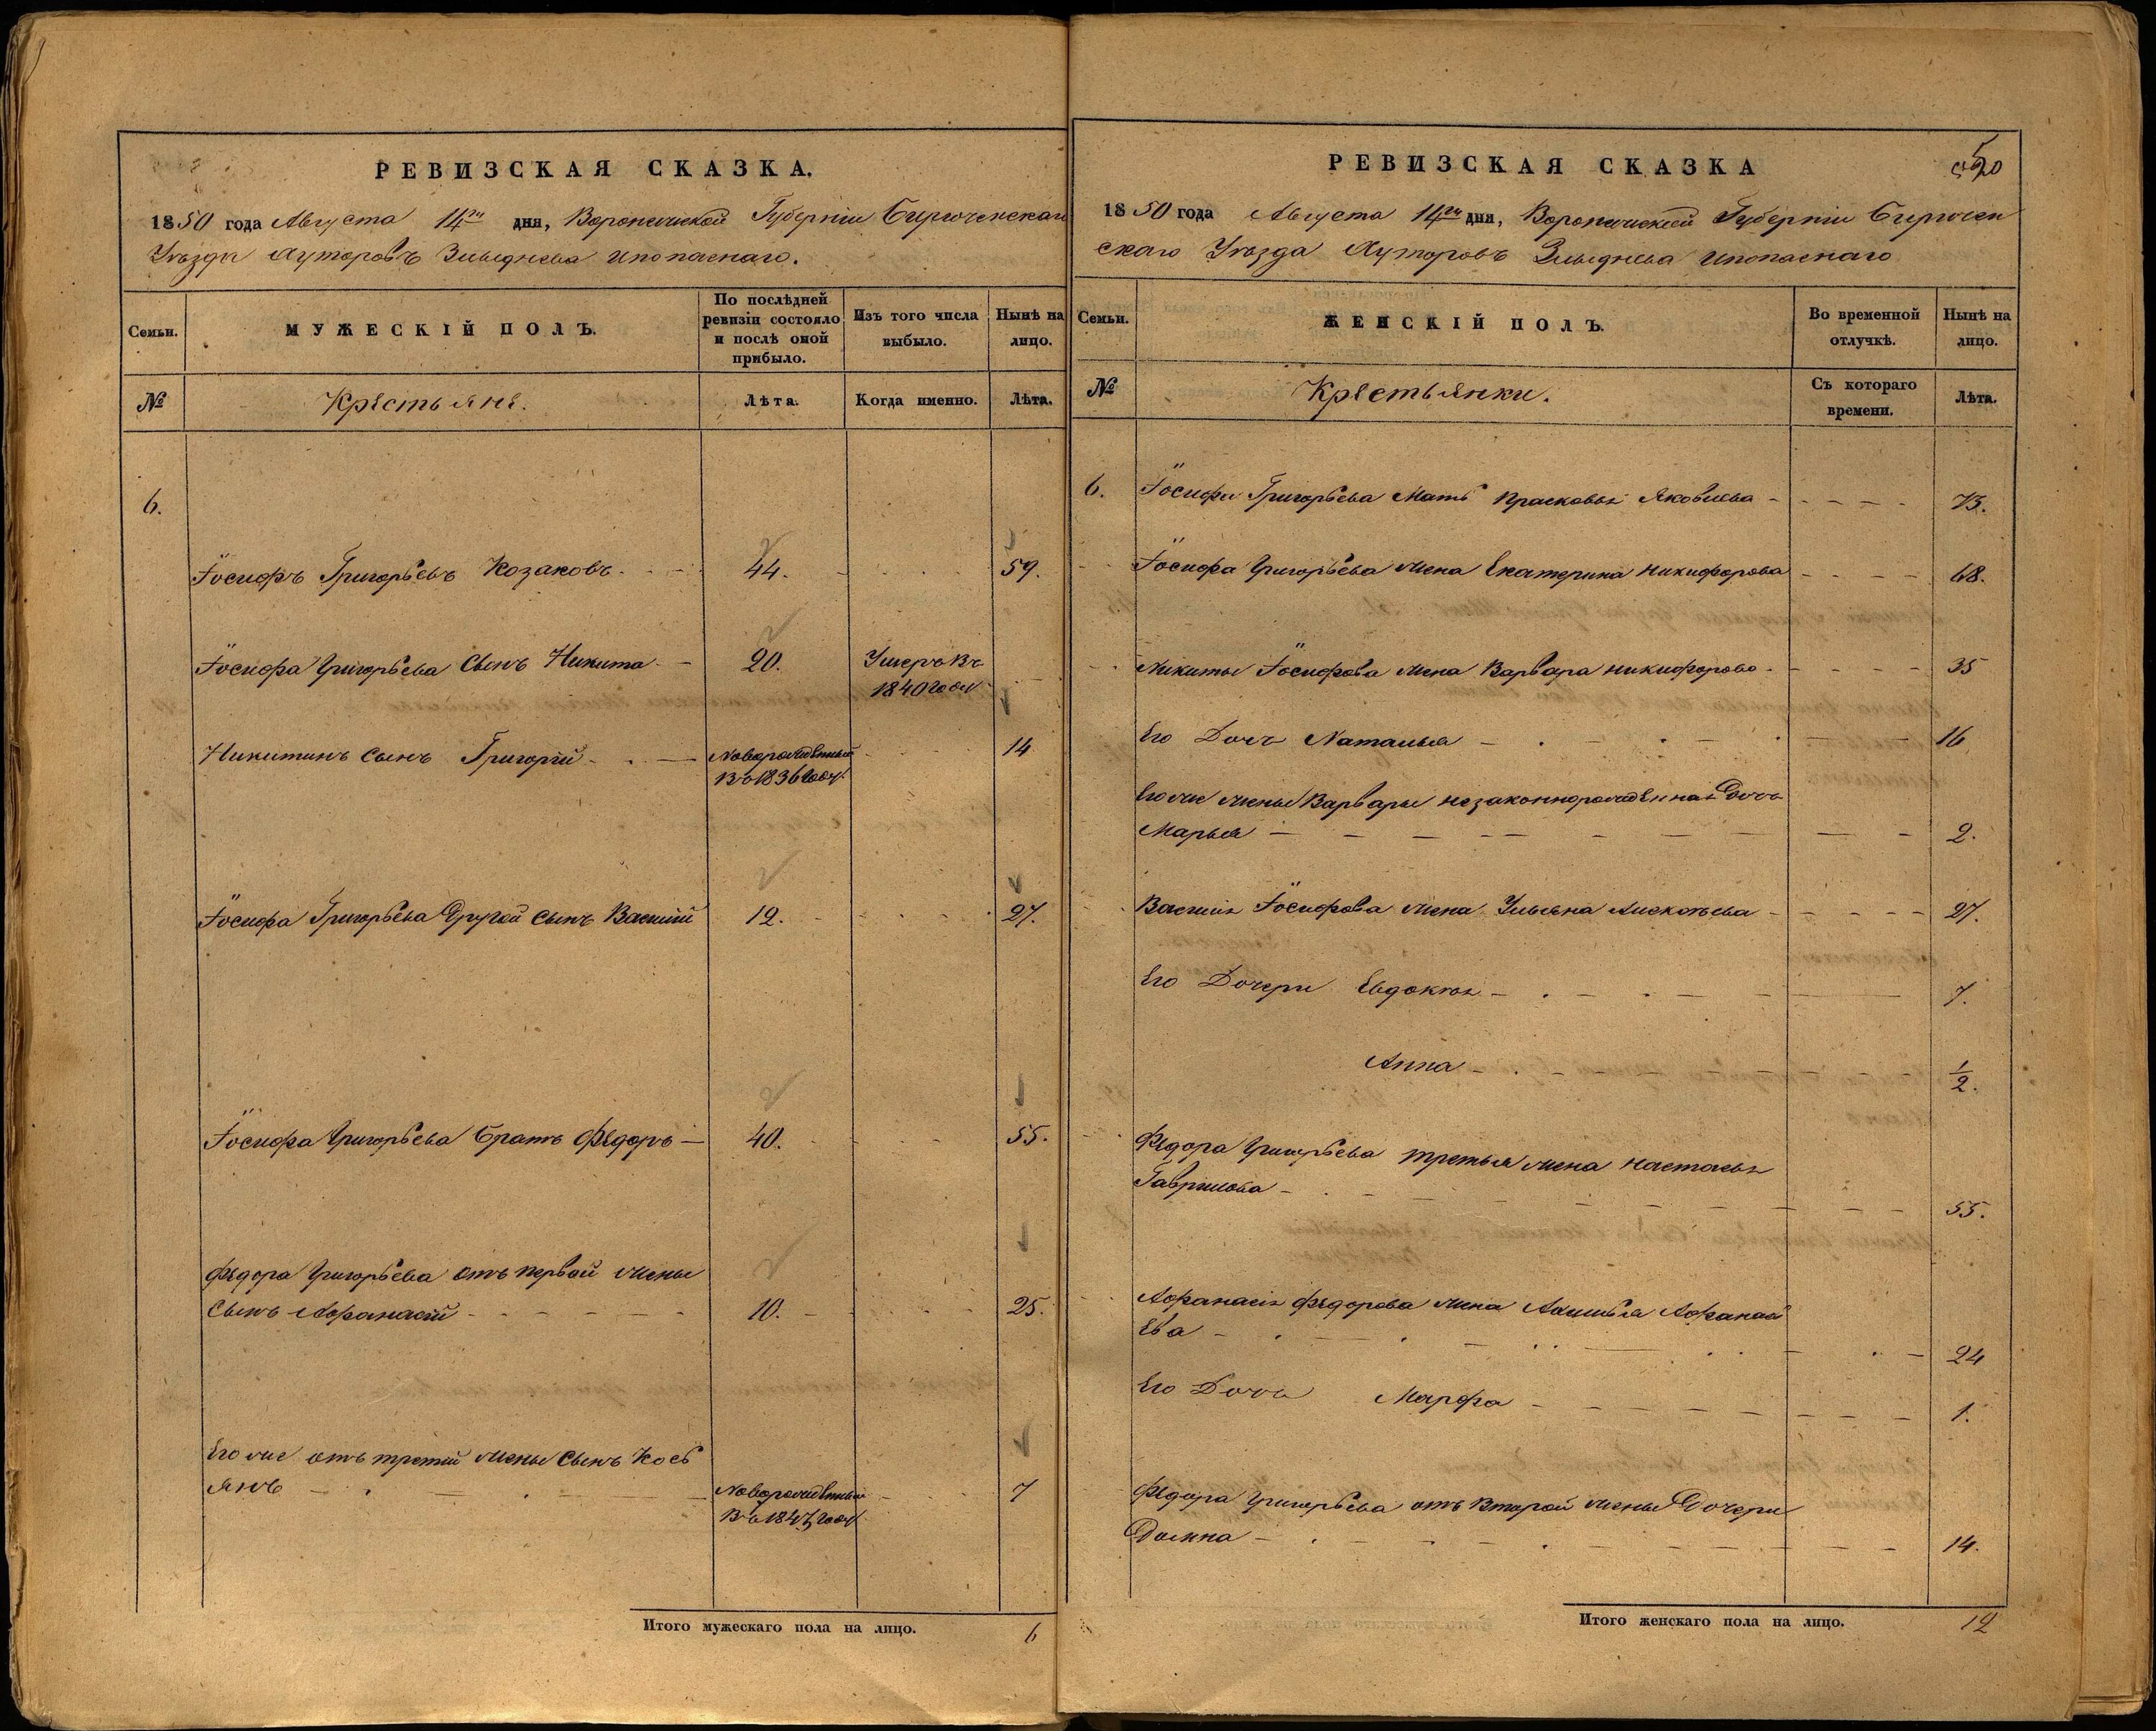 РЕВИЗСКАЯ СКАЗКА.
1850 года Августа 14го дня, Воронежской Губерніи Бирюченскаго
Уѣзда Хуторовъ
Семьи.
МУЖЕСКІЙ ПОЛЪ.
По послѣдней ревизіи состояло и послѣ оной прибыло.
Изъ того числа выбыло.
Нынѣ на лицо.
№
Крестьяне.
Лѣта.
Когда именно.
Лѣта.
6.
Іосифъ Григорьевъ Козаковъ. 44. 59.
Іосифа Григорьева Сынъ Никита 20. Умеръ въ
1840 году
Никитинъ сынъ Григорій Новорожденный 14
въ 1836 году
Іосифа Григорьева Другой сынъ Василій 12. 27.
Іосифа Григорьева Братъ Федоръ 40. 55.
Федора Григорьева отъ первой жены
Сынъ Афанасій 10. 25.
Его же отъ третей жены Сынъ Кось
янъ Новорожденный 7
въ 1843 году
Итого мужескаго пола на лицо. 6
РЕВИЗСКАЯ СКАЗКА
1850 года Августа 14го дня, Воронежской Губерніи Бирючен
скаго Уѣзда Хуторовъ
Семьи.
ЖЕНСКІЙ ПОЛЪ.
Во временной отлучкѣ.
Нынѣ на лицо.
№
Крестьянки.
Съ котораго времени.
Лѣта.
6. Іосифа Григорьева Мать Прасковья Яковлева 73.
Іосифа Григорьева жена Екатерина Никифорова 68.
Никиты Іосифова жена Варвара Никифорова 35
Его Дочь Наталья 16
Его же жены Варвары незаконнорожденная Дочь
Марья 2.
Василія Іосифова жена Ульяна 27.
Его Дочери Евдокія 7.
Анна 1/2.
Федора Григорьева третья жена Настасья
Гаврилова 55.
Афанасія Федорова жена Акилина Афанась
ева 24
Его Дочь Марфа 1.
Федора Григорьева отъ второй жены Дочери
Домна 14.
Итого женскаго пола на лицо. 12